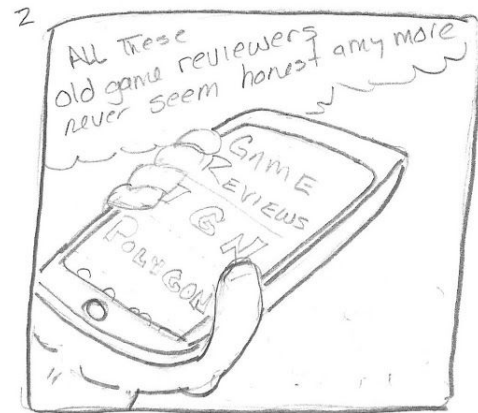 2
All These
old game reviewers
never seem honest any more
GAME
REVIEWS
IGN
POLYGON